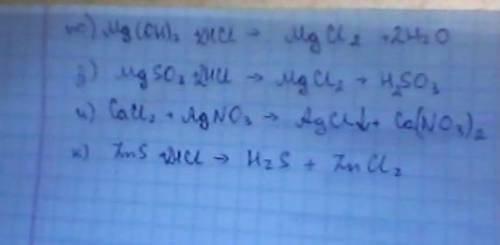 ж) Mg(OH)₂ 2HCl → MgCl₂ + 2H₂O
з) MgSO₃ 2HCl → MgCl₂ + H₂SO₃
и) CaCl₂ + AgNO₃ → AgCl↓ + Ca(NO₃)₂
к) ZnS 2HCl → H₂S + ZnCl₂